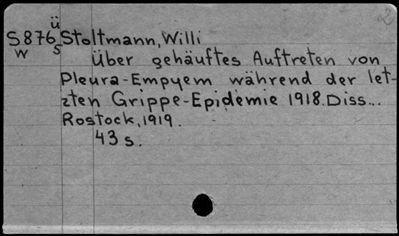 ü
S876 Stoltmann, Willi
w s Über gehäuftes Auftreten von
Pleura-Empyem während der let-
zten Grippe-Epidemie 1918. Diss...
Rostock, 1919.
43 s.
2